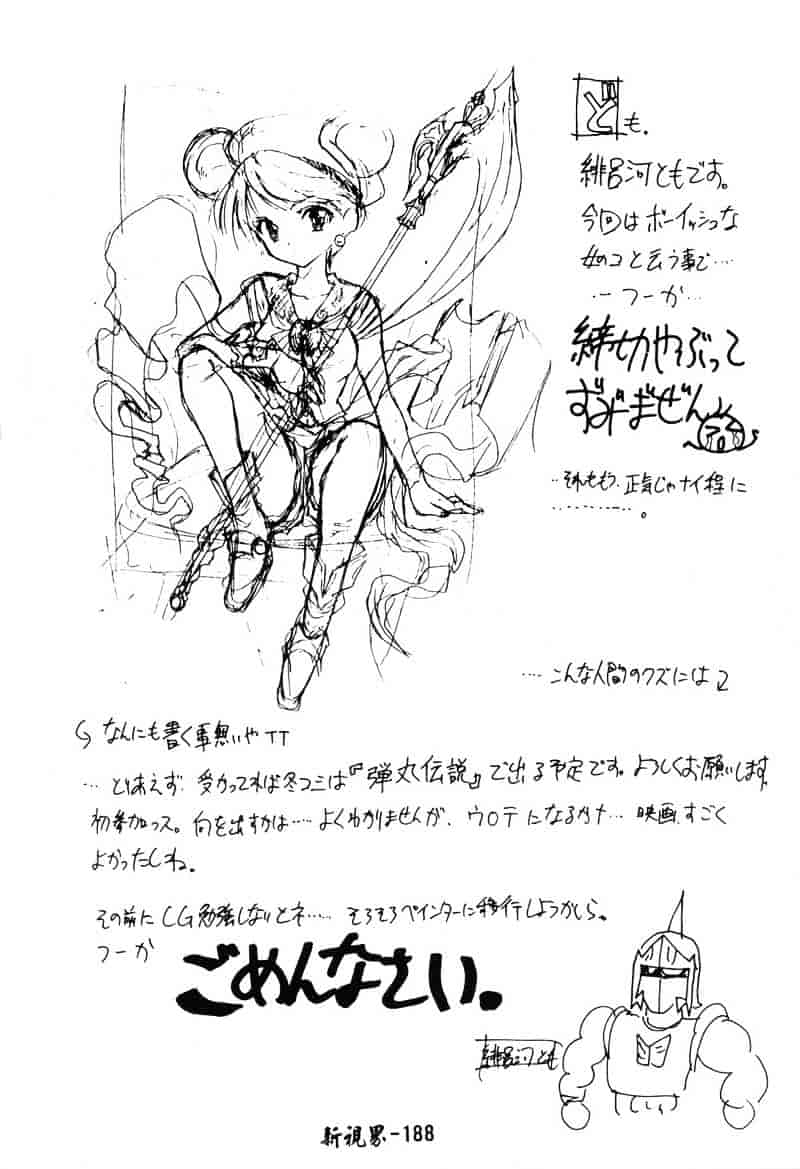 ども.
緋呂河ともです。
今回はボーイッシュな
女のコと云う事で‥‥
‥つーか‥
締切やぶって
ずみばぜん
‥それももう、正気じゃナイ程に
‥‥‥‥。
‥‥こんな人間のクズには
なんにも書く事無いや TT
‥とりあえず、受かってれば冬コミは『弾丸伝説』で出る予定です。よろしくお願いします。
初参加っス。何を出すかは‥‥よくわかりませんが、ウロテになるかナ‥ 映画、すごく
よかったしね。
その前にCG勉強しないとネ‥‥ そろそろペインターに移行しようかしら。
つーか
ごめんなさい。
緋呂河とも
新視界-188